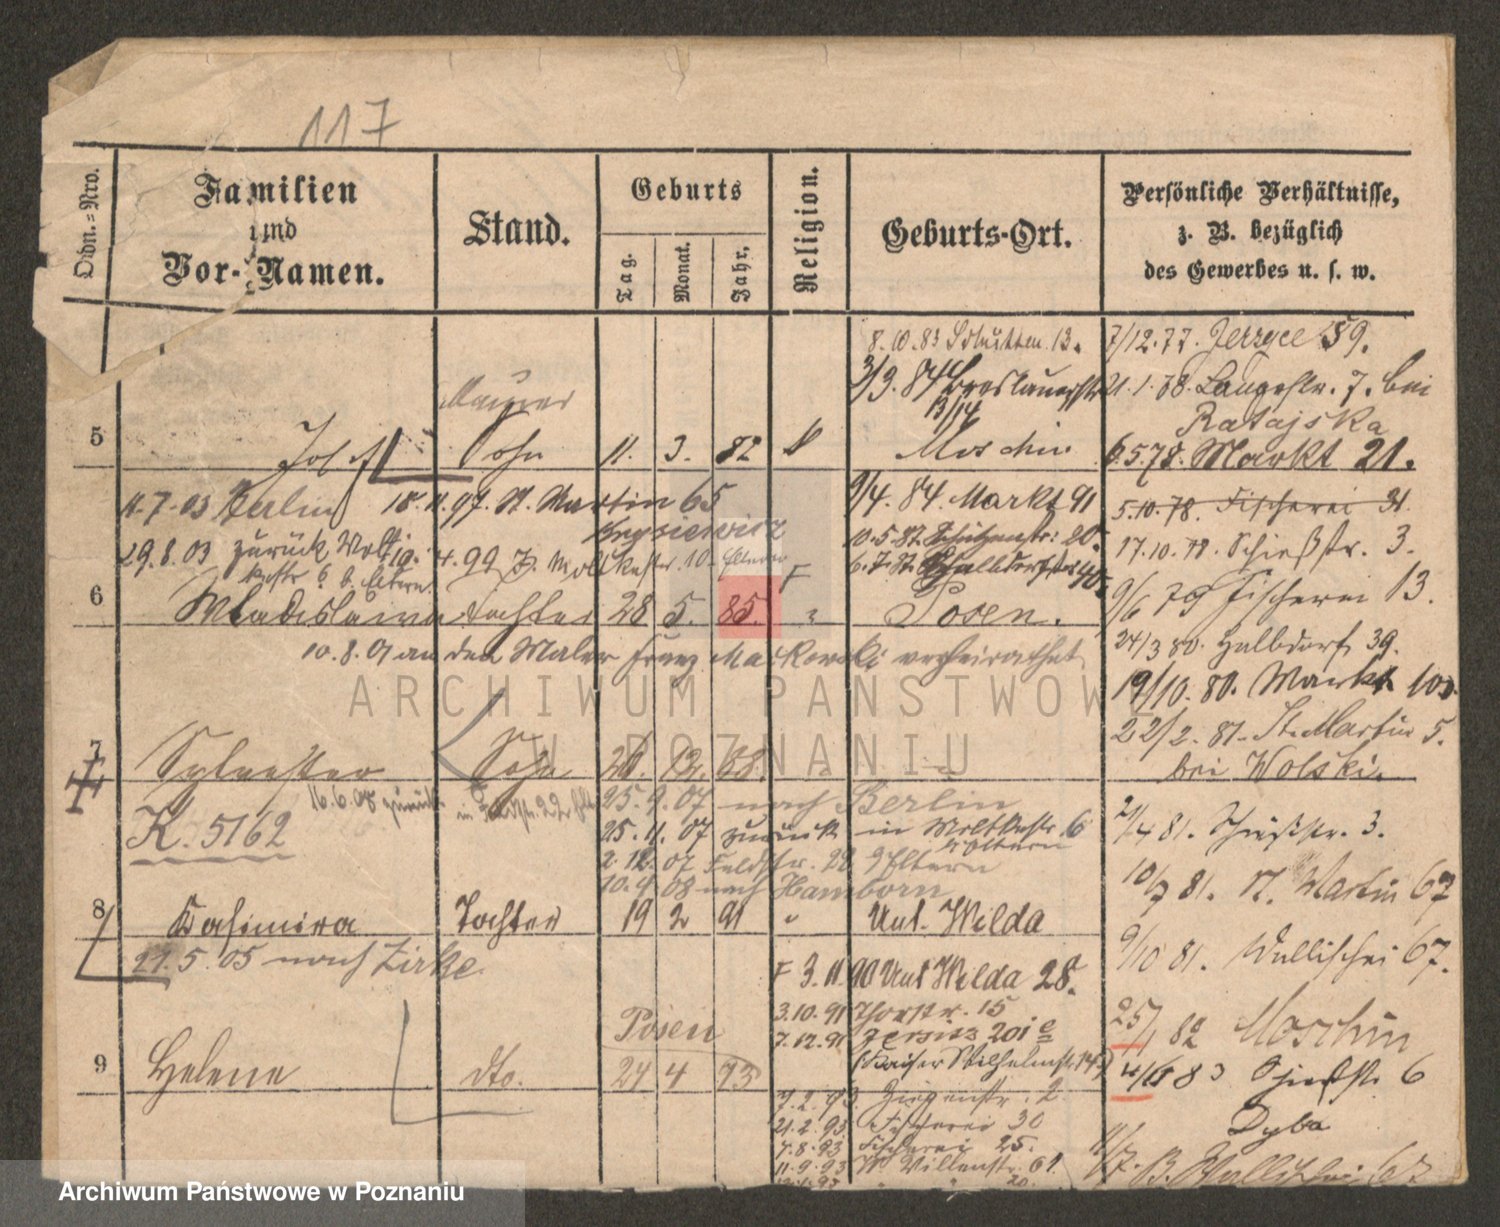 117
Ordn.=Nro.
Familien
und
Vor-Namen.
Stand.
Geburts
Tag.
Monat.
Jahr.
Religion.
Geburts-Ort.
Persönliche Verhältnisse,
z. B. bezüglich
des Gewerbes u. s. w.
8.10.83 13.
3/9. 84 Breslauerstr
13/14
Maurer
5 Josef Sohn 11. 3. 82 Moschin
11.7.03 Berlin 18.11.97. St. Martin 65
Krysiewicz
29.8.03 zurück Moltkestr 6 b. Eltern
19.4.99 Moltkestr. 10. Eltern
9/4. 84. Markt 91
10.5.87. Schützenstr: 20.
Halbdorfstr 40.
F
6 Wladislawa Tochter 28 5. 85. " Posen.
10.8.01 an den Maler Franz Maćkowski verheirathet
7 Sylvester Sohn 12. 88. " "
16.6.08 zurück in Feldstr. 22
K. 5162
25.9.07 nach Berlin
25.11.07 zurück in Moltkestr 6
b Eltern
2.12.07 Feldstr. 22 Eltern
10.4.08 nach Hamborn
8 Kasimira Tochter 19 2 91 " Unt. Wilda
27.5.05 nach Zirke.
F 3.11.90 Unt Wilda 28.
3.10.91 Thorstr. 15
7.12.91 Jersitz 201 e
(Kaiser Wilhelmstr 14)
Posen
9 Helene dto. 24 4 93
7.2.93 Ziegenstr. 2
21.2.93 Fischerei 30
7.8.93 Fischerei 25.
11.9.93 61.
7/12.77. Jerzyce 59.
21.1.78. Langestr. 7. bei
Ratajska
6.5.78. Markt 21.
5.10.78. Fischerei 31.
17.10.78. Schießstr. 3.
9/6 79 Fischerei 13.
24/3 80. Halbdorf 39.
19/10. 80. Markt 100.
22/2. 81. St. Martin 5.
bei Wolski.
21/4 81. Schießstr. 3.
10/7 81. St. Martin 67
9/10 81. Wallischei 67.
25/1 82 Moschin
83 Schießstr 6
Dyba
Wallischei 67
ARCHIWUM PAŃSTWOW
W POZNANIU
Archiwum Państwowe w Poznaniu